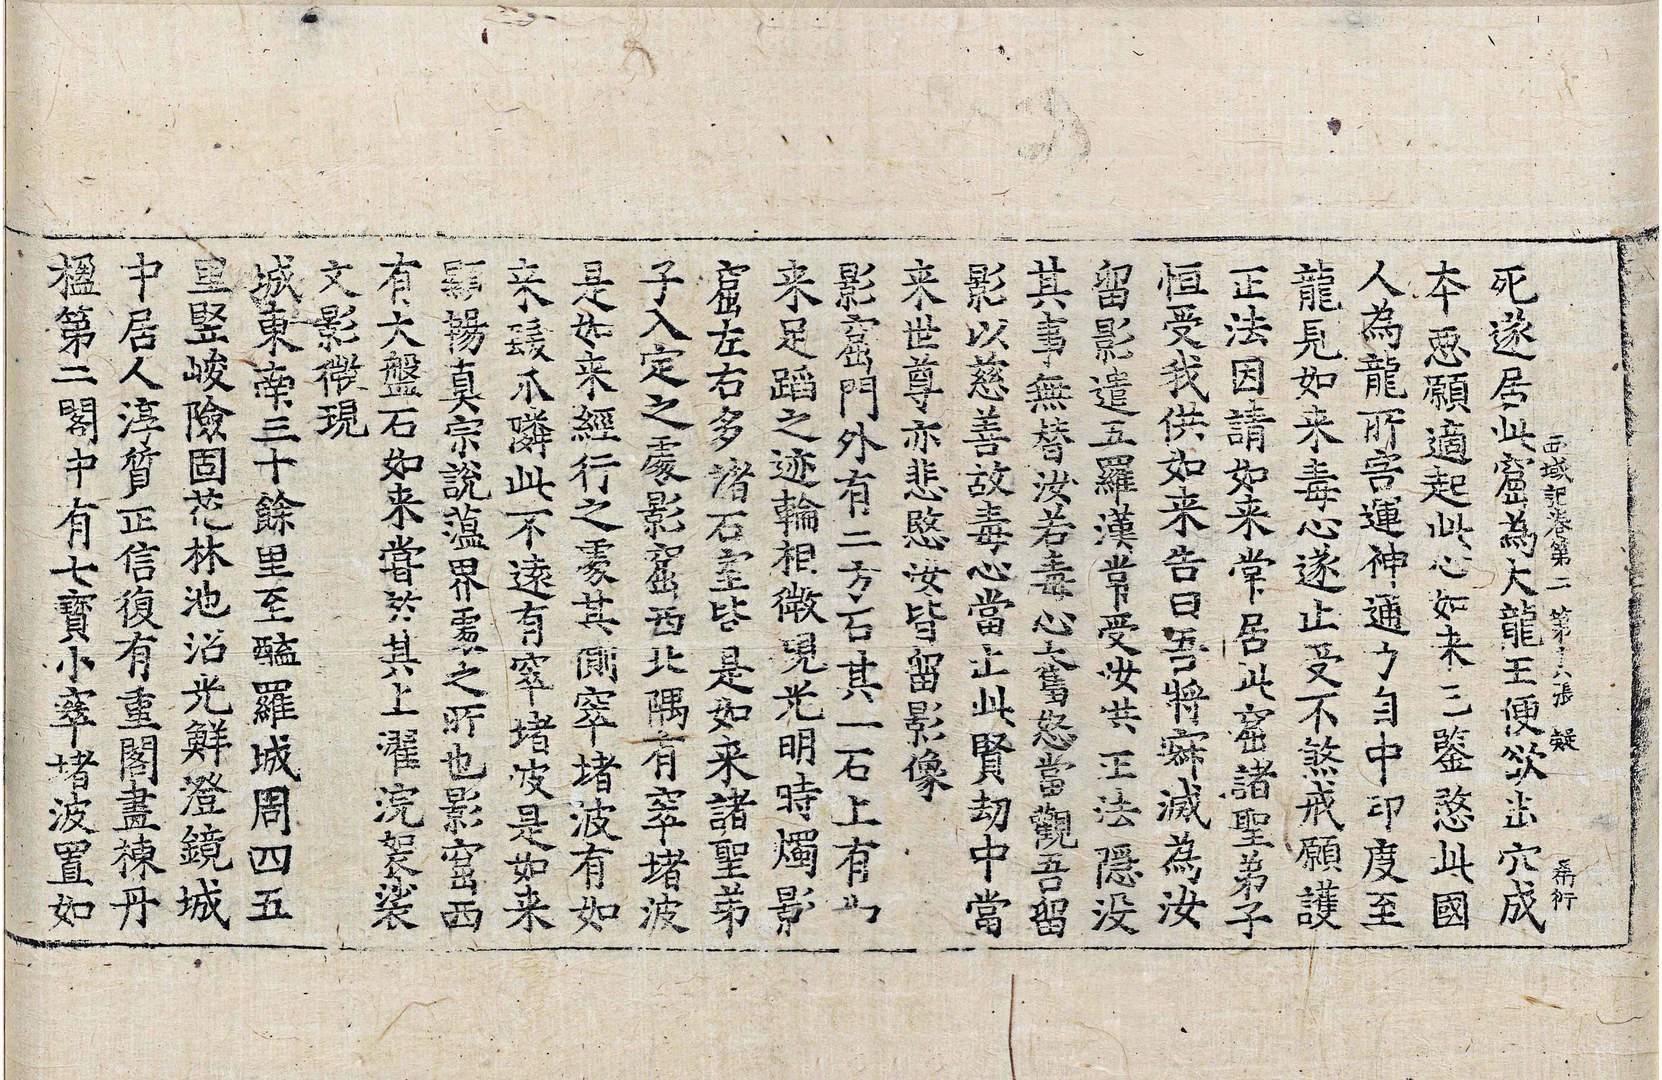 西域記卷第二 第十六張 疑
死遂居此窟為大龍王便欲出穴成
本惡願適起此心如来已鑒愍此國
人為龍所害運神通力自中印度至
龍見如来毒心遂止受不煞戒願護
正法因請如来常居此窟諸聖弟子
恒受我供如来告曰吾將寂滅為汝
留影遣五羅漢常受汝供正法隱没
其事無替汝若毒心奮怒當觀吾留
影以慈善故毒心當止此賢劫中當
来世尊亦悲愍汝皆留影像
影窟門外有二方石其一石上有如
来足蹈之迹輪相微現光明時燭影
窟左右多諸石室皆是如来諸聖弟
子入定之處影窟西北隅有窣堵波
是如来經行之處其側窣堵波有如
来髮爪隣此不遠有窣堵波是如来
顯暢真宗說蘊界處之所也影窟西
有大盤石如来嘗於其上濯浣袈裟
文影微現
城東南三十餘里至醯羅城周四五
里竪峻險固花林池沼光鮮澄鏡城
中居人淳質正信復有重閣畫棟丹
楹第二閣中有七寶小窣堵波置如